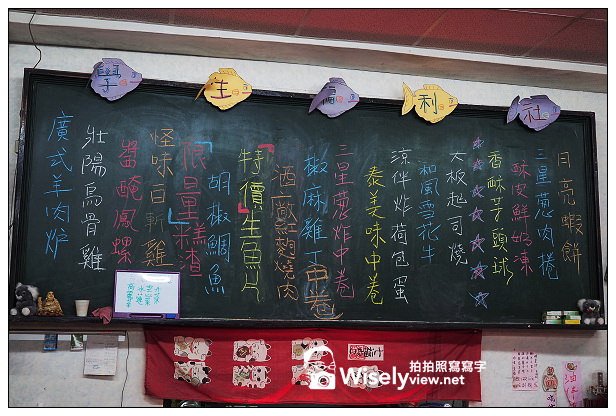 學生福利社
月亮蝦餅
三星蔥肉捲
酥皮鮮奶凍
香酥芋頭球
大板起司燒
和風雪花牛
涼伴炸荷包蛋
泰美味中卷
三星蔥炸中卷
椒麻雞丁
酒廠紅麴燒肉
特價生魚片
胡椒鯛魚
限量糕渣
怪味百斬雞
醬醃鳳螺
壯陽烏骨雞
廣式羊肉炉
拍拍照寫寫字
Wiselyview.net